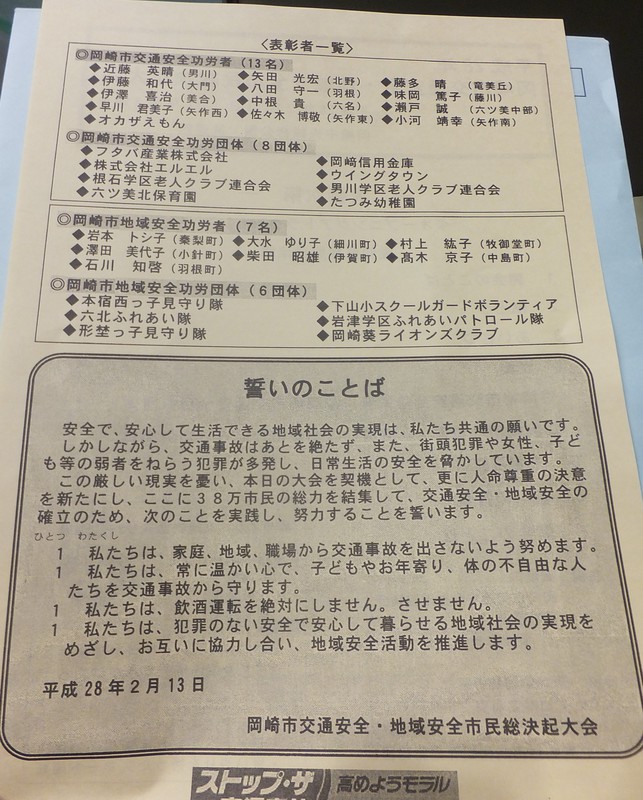 〈表彰者一覧〉
◎岡崎市交通安全功労者（13名）
◆近藤　英晴（男川）　◆矢田　光宏（北野）　◆藤多　晴　（竜美丘）
◆伊藤　和代（大門）　◆八田　守一（羽根）　◆味岡　篤子（藤川）
◆伊澤　喜治（美合）　◆中根　貴　（六名）　◆瀬戸　誠　（六ツ美中部）
◆早川　君美子（矢作西）　◆佐々木　博敬（矢作東）　◆小河　靖幸（矢作南）
◆オカザえもん
◎岡崎市交通安全功労団体（８団体）
◆フタバ産業株式会社　◆岡﨑信用金庫
◆株式会社エルエル　◆ウイングタウン
◆根石学区老人クラブ連合会　◆男川学区老人クラブ連合会
◆六ツ美北保育園　◆たつみ幼稚園
◎岡崎市地域安全功労者（７名）
◆岩本　トシ子（秦梨町）　◆大水　ゆり子（細川町）　◆村上　紘子（牧御堂町）
◆澤田　美代子（小針町）　◆柴田　昭雄（伊賀町）　◆髙木　京子（中島町）
◆石川　知啓（羽根町）
◎岡崎市地域安全功労団体（６団体）
◆本宿西っ子見守り隊　◆下山小スクールガードボランティア
◆六北ふれあい隊　◆岩津学区ふれあいパトロール隊
◆形埜っ子見守り隊　◆岡崎葵ライオンズクラブ
誓いのことば
安全で、安心して生活できる地域社会の実現は、私たち共通の願いです。
しかしながら、交通事故はあとを絶たず、また、街頭犯罪や女性、子ど
も等の弱者をねらう犯罪が多発し、日常生活の安全を脅かしています。
この厳しい現実を憂い、本日の大会を契機として、更に人命尊重の決意
を新たにし、ここに３８万市民の総力を結集して、交通安全・地域安全の
確立のため、次のことを実践し、努力することを誓います。
ひとつ　わたくし
1　私たちは、家庭、地域、職場から交通事故を出さないよう努めます。
1　私たちは、常に温かい心で、子どもやお年寄り、体の不自由な人
たちを交通事故から守ります。
1　私たちは、飲酒運転を絶対にしません。させません。
1　私たちは、犯罪のない安全で安心して暮らせる地域社会の実現を
めざし、お互いに協力し合い、地域安全活動を推進します。
平成28年２月13日
岡崎市交通安全・地域安全市民総決起大会
ストップ・ザ　高めようモラル